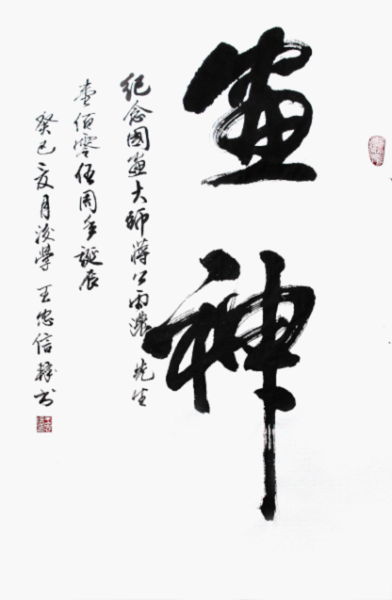 畫神
紀念國畫大師蔣公雨濃先生
壹佰零伍周年誕辰
癸巳夏月後學王忠信拜書